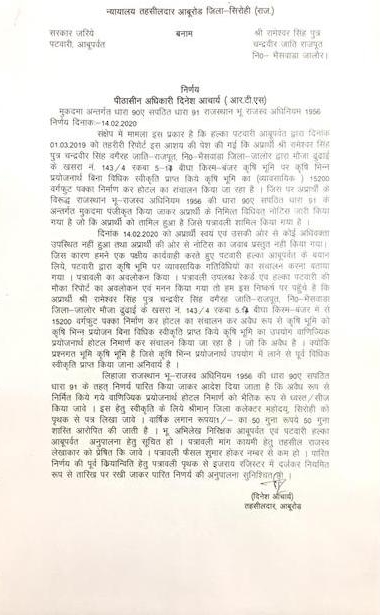 न्यायालय तहसीलदार आबूरोड जिला–सिरोही (राज.)
सरकार जरिये बनाम श्री रामेश्वर सिंह पुत्र
पटवारी, आबूपर्वत चन्द्रवीर जाति राजपूत,
नि0– भेंसवाडा जालोर।
निर्णय
पीठासीन अधिकारी दिनेश आचार्य ( आर.टी.एस)
मुकदमा अन्तर्गत धारा 90ए सपठित धारा 91 राजस्थान भू राजस्व अधिनियम 1956
निर्णय दिनांकः–14.02.2020
संक्षेप में मामला इस प्रकार है कि हल्का पटवारी आबूपर्वत द्वारा दिनांक
01.03.2019 को तहरीरी रिपोर्ट इस आशय की पेश की गई कि अप्रार्थी श्री रामेश्वर सिंह
पुत्र चन्द्रवीर सिंह वगैरह जाति–राजपूत, नि0–भेंसवाडा जिला–जालोर मौजा ढुढाई के
खसरा नं. 143/4 रकबा 5– बीघा किस्म–बंजर कृषि भूमि पर कृषि भिन्न
प्रयोजनार्थ बिना विधिक स्वीकृति प्राप्त किये कृषि भूमि का (व्यावसायिक ) 15200
वर्गफुट पक्का निर्माण कर होटल का संचालन किया जा रहा है । जिस पर अप्रार्थी के
विरूद्ध राजस्थान भू–राजस्व अधिनियम 1956 की धारा 90ए सपठित धारा 91 के
अन्तर्गत मुकदमा पंजीकृत किया जाकर अप्रार्थी के निमित विधिवत् नोटिस जारी किया
गया है जो कि अप्रार्थी को तामिल हुआ है जिसे पत्रावली शामिल किया गया है ।
दिनांक 14.02.2020 को अप्रार्थी स्वयं एवं उसकी ओर से कोई अधिवक्ता
उपस्थित नहीं हुआ तथा अप्रार्थी की ओर से नोटिस का जवाब प्रस्तुत नहीं किया गया।
जिस कारण हमने एक पक्षीय कार्यवाही करते हुए पटवारी हल्का आबूपर्वत के बयान
लिये, पटवारी द्वारा कृषि भूमि पर व्यावसायिक गतिविधियों का संचालन करना बताया
गया । पत्रावली का अवलोकन किया । पत्रावली उपलब्ध रेकर्ड एवं हल्का पटवारी की
मौका रिपोर्ट का अवलोकन एवं मनन किया गया तो हम इस निष्कर्ष पर पहुंचे है कि
अप्रार्थी श्री रामेश्वर सिंह पुत्र चन्द्रवीर सिंह वगैरह जाति–राजपूत, नि0–भेंसवाडा
जिला–जालोर मौजा ढुढाई के खसरा नं. 143/4 रकबा 5. बीघा किस्म–बंजर में से
15200 वर्गफुट पक्का निर्माण कर होटल का संचालन कर अवैध रूप से कृषि भूमि को
कृषि भिन्न प्रयोजन बिना विधिक स्वीकृति प्राप्त किये कृषि भूमि का उपयोग वाणिज्यिक
प्रयोजनार्थ होटल निर्माण कर संचालन किया जा रहा है । जो कि अवैध है । क्योंकि
प्रश्नगत भूमि कृषि भूमि है जिसे कृषि भिन्न प्रयोजनार्थ उपयोग में लाने से पूर्व विधिक
स्वीकृति प्राप्त किया जाना अनिवार्य है ।
लिहाजा राजस्थान भू–राजस्व अधिनियम 1956 की धारा 90ए सपठित
धारा 91 के तहत् निर्णय पारित किया जाकर आदेश दिया जाता है कि अवैध रूप से
निर्मित किये गये वाणिज्यिक प्रयोजनार्थ निर्माण होटल को भौतिक रूप से ध्वस्त/सीज
किया जावे । इस हेतु स्वीकृति के लिये श्रीमान् जिला कलेक्टर महोदय, सिरोही को
पृथक से पत्र लिखा जावे । वार्षिक लगान रूपया1/– का 50 गुना रूपये 50 गुना
शास्ति आरोपित की जाती है । भू अभिलेख निरिक्षक आबूपर्वत एवं पटवारी हल्का
आबूपर्वत अनुपालना हेतु सूचित हो । पत्रावली मांग कायमी हेतु तहसील राजस्व
लेखाकार को प्रेषित कि जावे । पत्रावली फैसल शुमार होकर नम्बर से कम हो । पारित
निर्णय की पूर्व क्रियान्विति हेतु पत्रावली पृथक से इजराय रजिस्टर में दर्जकर नियमित
रूप से तारिख पर रखी जाकर पारित निर्णय की अनुपालना सुनिश्चित हो ।
(दिनेश आचार्य)
तहसीलदार, आबूरोड